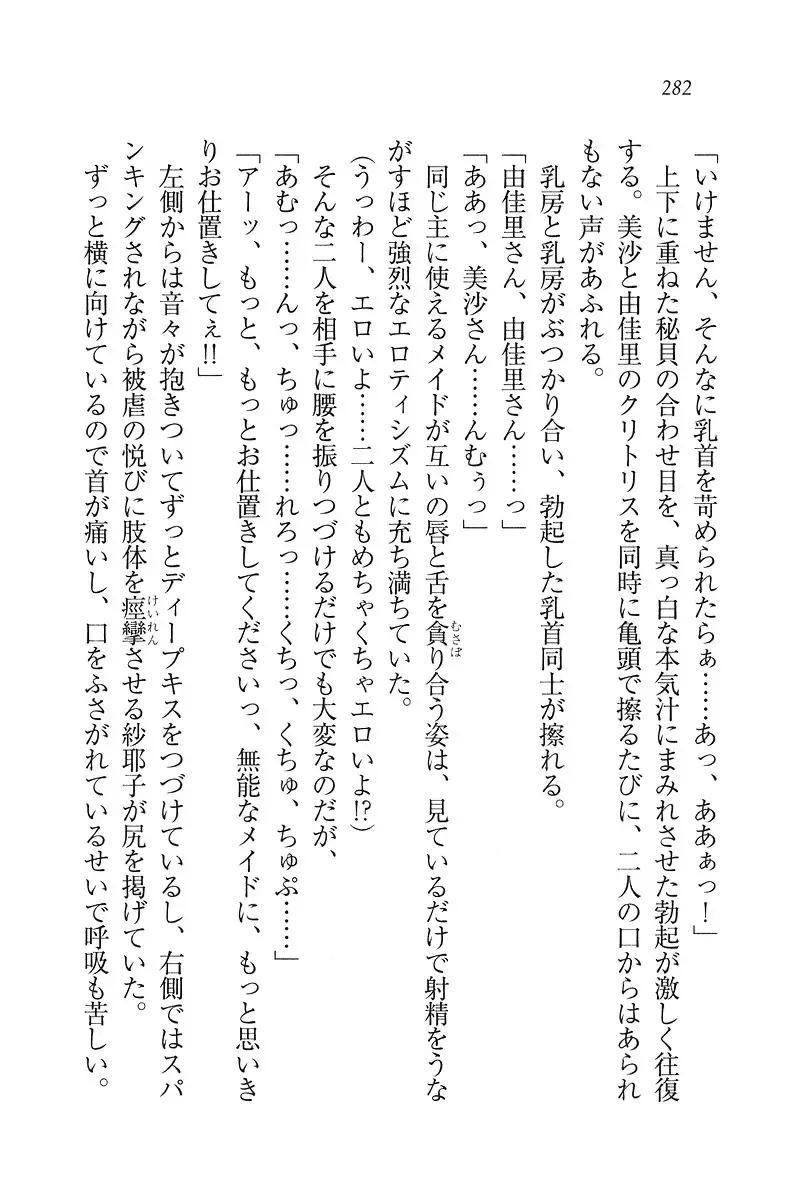 282
「いけません、そんなに乳首を苛められたらぁ……あっ、ああぁっ！」
上下に重ねた秘貝の合わせ目を、真っ白な本気汁にまみれさせた勃起が激しく往復
する。美沙と由佳里のクリトリスを同時に亀頭で擦るたびに、二人の口からはあられ
もない声があふれる。
乳房と乳房がぶつかり合い、勃起した乳首同士が擦れる。
「由佳里さん、由佳里さん……っ」
「ああっ、美沙さん……んむぅっ」
同じ主に使えるメイドが互いの唇と舌を貪り合う姿は、見ているだけで射精をうな
むさぼ
がすほど強烈なエロティシズムに充ち満ちていた。
（うっわー、エロいよ……二人ともめちゃくちゃエロいよ!?）
そんな二人を相手に腰を振りつづけるだけでも大変なのだが、
「あむっ……んっ、ちゅっ……れろっ……くちっ、くちゅ、ちゅぷ……」
「アーッ、もっと、もっとお仕置きしてくださいっ、無能なメイドに、もっと思いき
りお仕置きしてぇ!!」
左側からは音々が抱きついてずっとディープキスをつづけているし、右側ではスパ
ンキングされながら被虐の悦びに肢体を痙攣させる紗耶子が尻を掲げていた。
けいれん
ずっと横に向けているので首が痛いし、口をふさがれているせいで呼吸も苦しい。